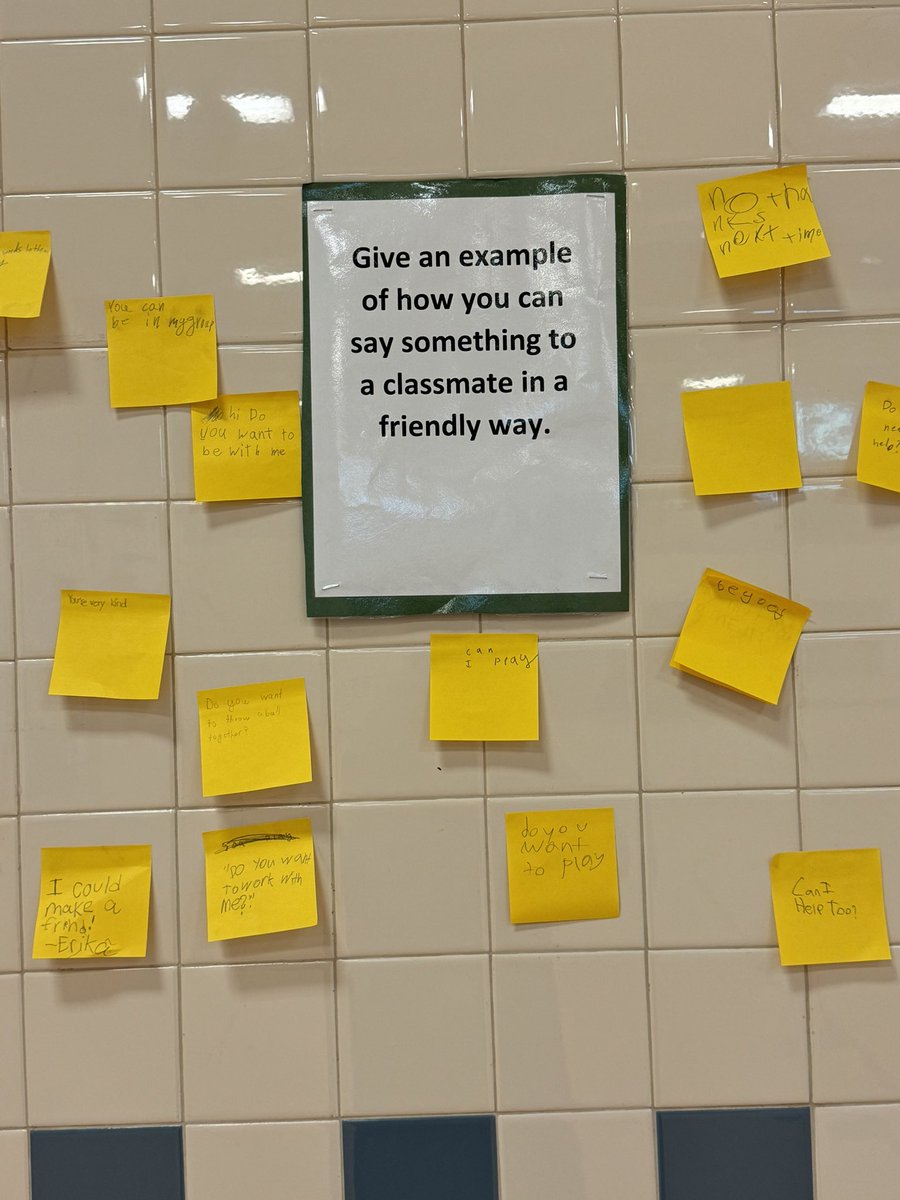 Give an example
of how you can
say something to
a classmate in a
friendly way.
You can
be in my group
hi Do
you want to
be with me
You're very kind
Do you want
to throw a ball
together?
I could
make a
frind!
-Erika
"Do you want
to work with
me?"
can
I play
do you
want
to play
no tha
nks
next time
Do
help?
Can I
Help Too?